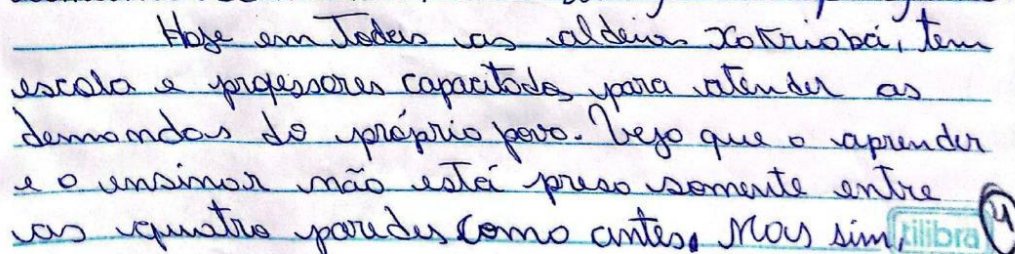 Hoje em todas as aldeias Xakriabá, tem
escola e professores capacitados para atender as
demandas do próprio povo. Vejo que o aprender
e o ensinar não está preso somente entre
as quatro paredes como antes. Mas sim,
tilibra
4